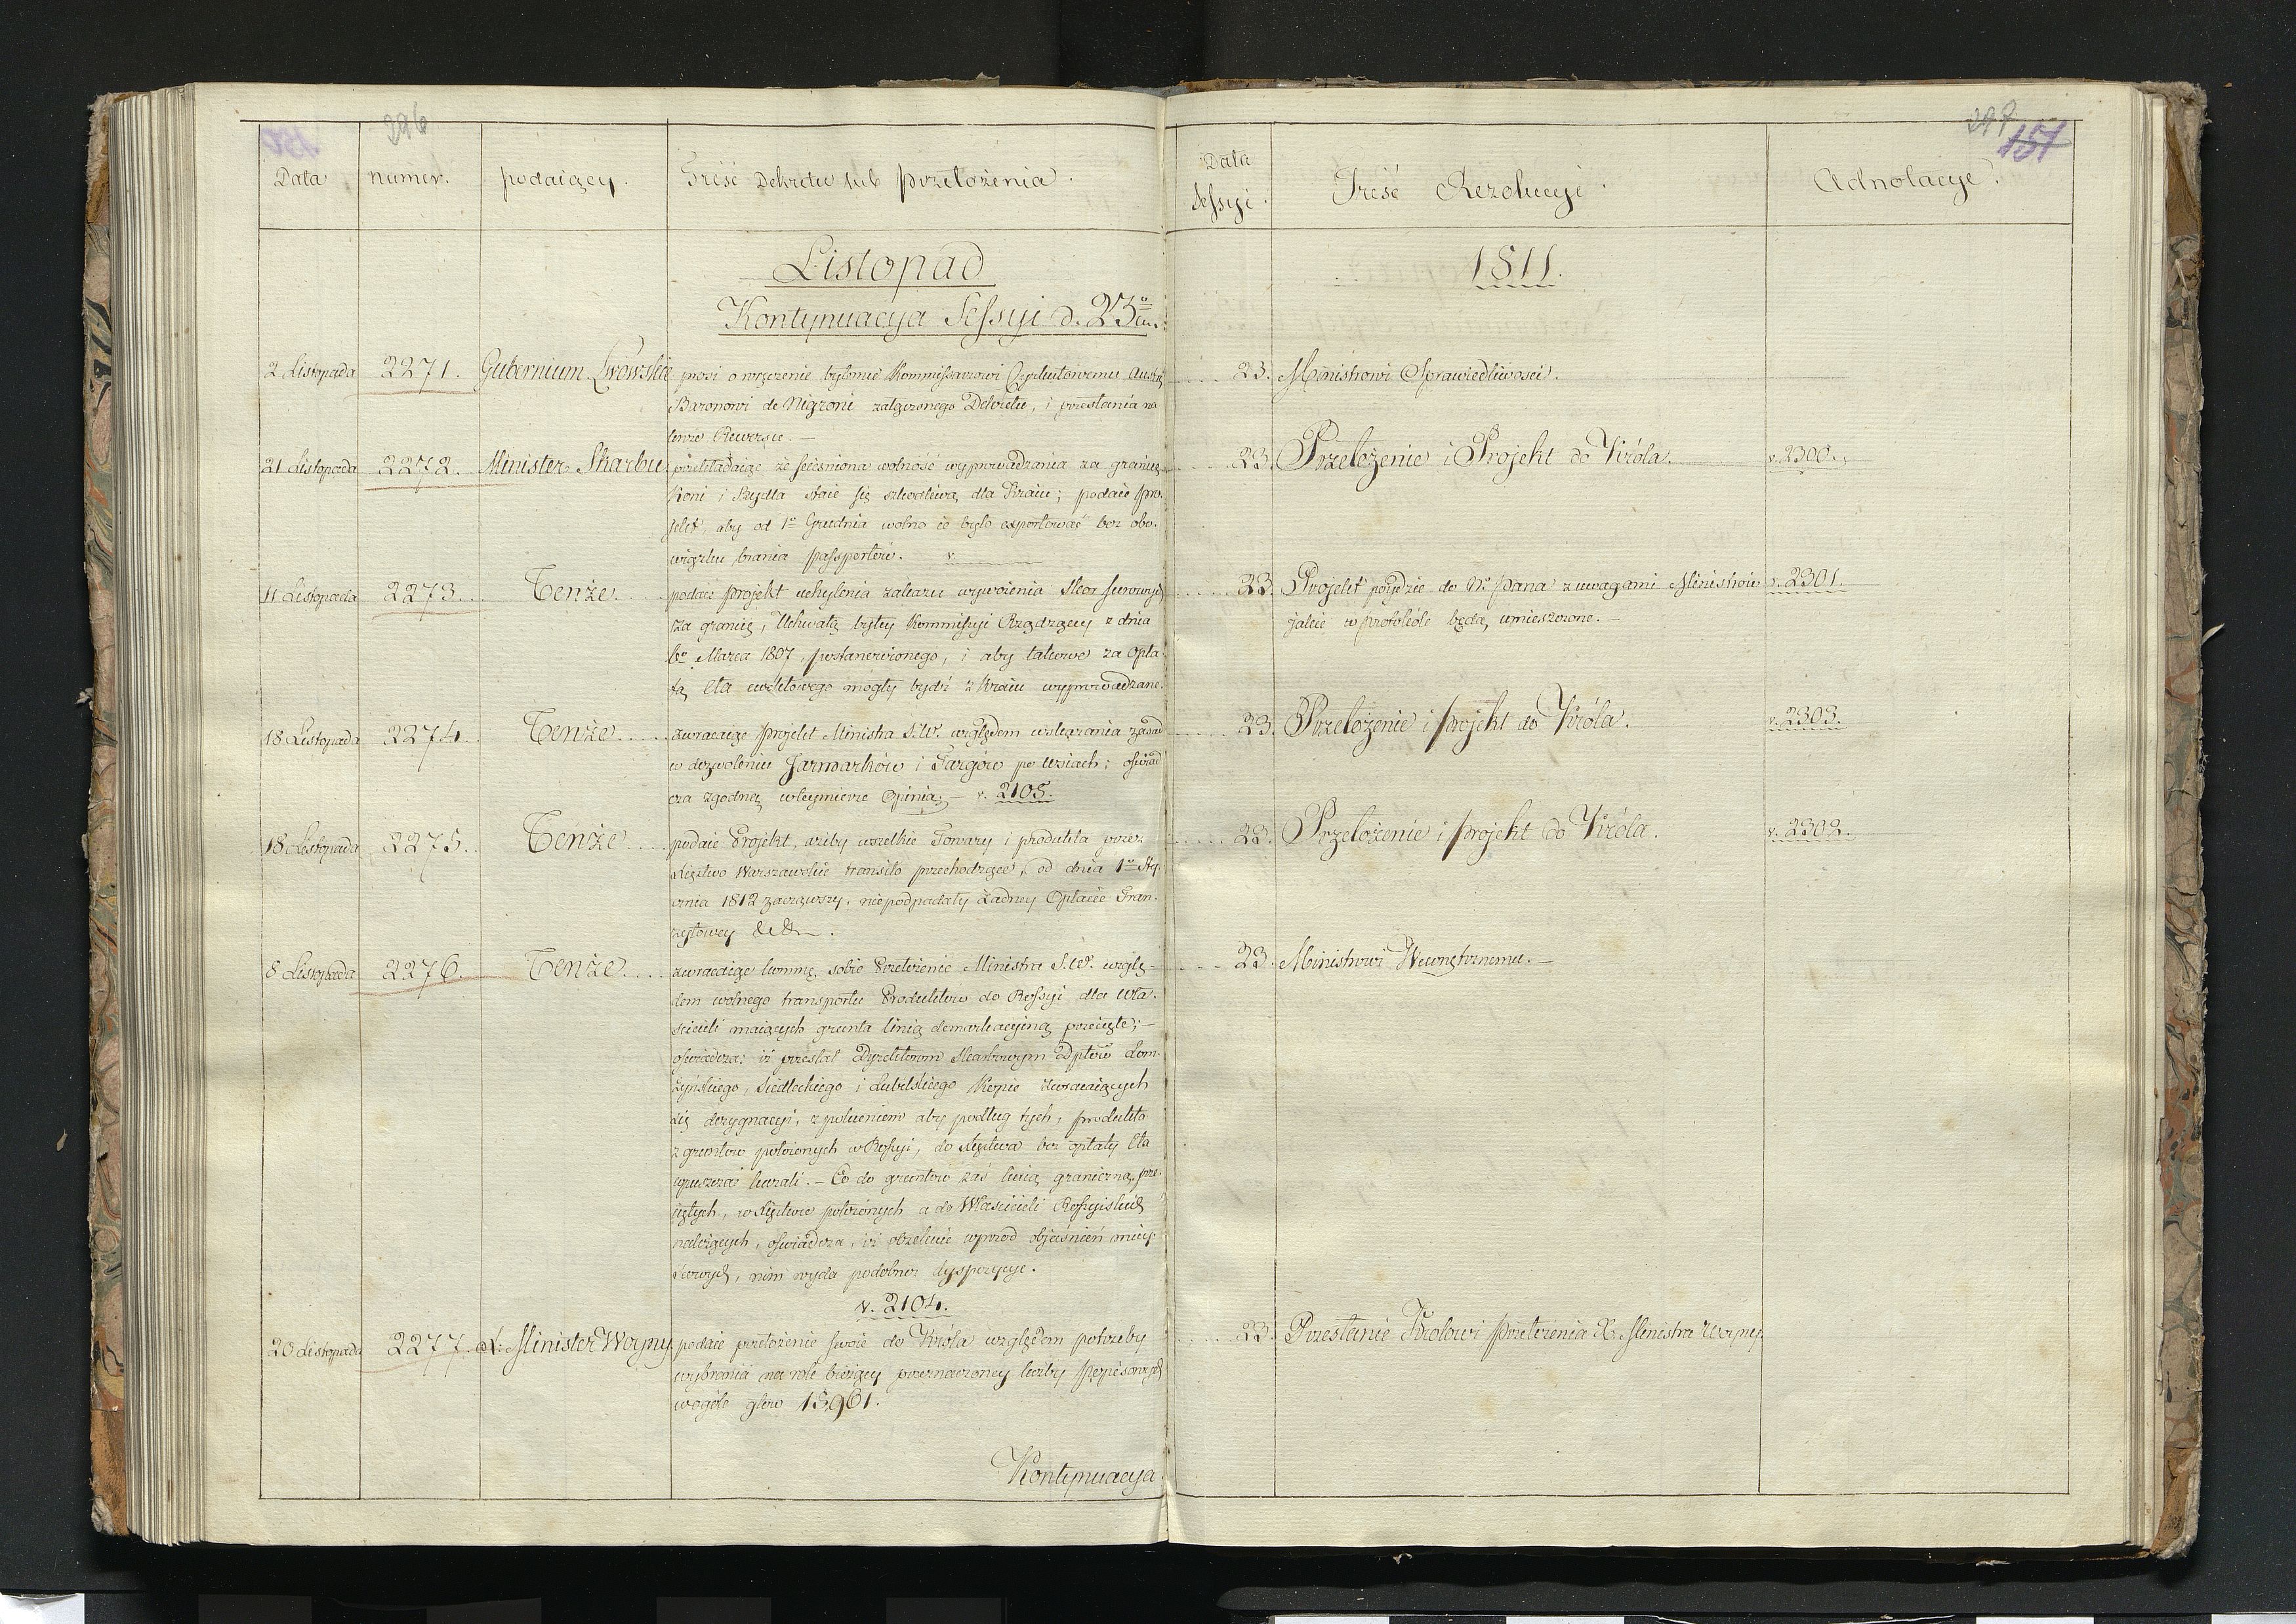 296
Data numer. podaiący. Treść Dekretu lub przełożenia.
Listopad
Kontynuacya Sessyi d. 23º eu.
2 Listopada 2271. Gubernium Lwowskie prosi o wręczenie byłemu Kommissarzowi Cyrkułowemu Austr:
Baronowi de Nigroni załączonego Dekretu, i przesłania na
tenże Rewersu. —
21 Listopada 2272. Minister Skarbu przekładaiąc że ścieśniona wolność wyprowadzania za granicę
Koni i Bydła staie się szkodliwą dla Kraiu; podaie pro-
jekt aby od 1º Grudnia wolno ie było exportować bez obo-
wiązku brania passportów. v.
11 Listopada 2273. Tenże. podaie projekt uchylenia zakazu wywożenia Skor surowych
za granicę, Uchwałą byłey Kommissyi Rządzącey z dnia
6º Marca 1807, postanowionego, i aby takowe za opła-
tą Cła ewiktowego mogły bydź z Kraiu wyprowadzane.
18 Listopada 2274. Tenże. zwracaiąc projekt Ministra S.W. względem wskazania zasad
w dozwoleniu Jarmarków i Targów po wsiach; oświad-
cza zgodną w tey mierze Opinią; — v. 2105.
18 Listopada 2275. Tenże. podaie Projekt, ażeby wszelkie Towary i produkta przez
Xięztwo Warszawskie transito przechodzące, od dnia 1º Sty-
cznia 1812 zacząwszy, nie podpadały żadney Opłacie Tran-
zytowey &c &c.
8 Listopada 2276. Tenże. zwracaiąc kommę sobie Przełożenie Ministra S.W. wzglę-
dem wolnego transportu Produktów do Rossyi dla wła-
ścicieli maiących grunta linią demarkacyiną przecięte; —
oświadcza: iż przesłał Dyrektorom Skarbowym Dptów Łom-
żyńskiego, Siedleckiego i Lubelskiego Kopie zwracaiących
się dezygnacyi, z poleceniem aby podług tych, produkta
z gruntów położonych w Rossyi, do Xięztwa bez opłaty Cła
wpuszczać kazali. — Co do gruntów zaś linią graniczną prze-
ciętych, w Xięztwie położonych a do Właścicieli Rossyiskich
należących, oświadcza, iż oczekuie wprzod objaśnień miey-
scowych, nim wyda podobne dyspozycye.
v. 2104.
20 Listopada 2277. X: Minister Woyny podaie przełożenie swoie do Króla względem potrzeby
wybrania na rok bieżący przeznaczoney liczby popisowych
wogóle głów 15,961.
Kontynuacya
297
151
Data Sessyi. Treść Rezolucyi. Adnotacye.
1811.
23. Ministrowi Sprawiedliwości.
23. Przełożenie i Projekt do Króla. v. 2300.
23. Projekt póydzie do N. Pana z uwagami Ministrów v. 2301.
jakie w protokóle będą umieszczone. —
23. Przełożenie i projekt do Króla. v. 2303.
23. Przełożenie i projekt do Króla. v. 2302.
23. Ministrowi Wewnętrznemu. —
23. Przesłanie Krolowi Przełożenia X. Ministra Woyny.